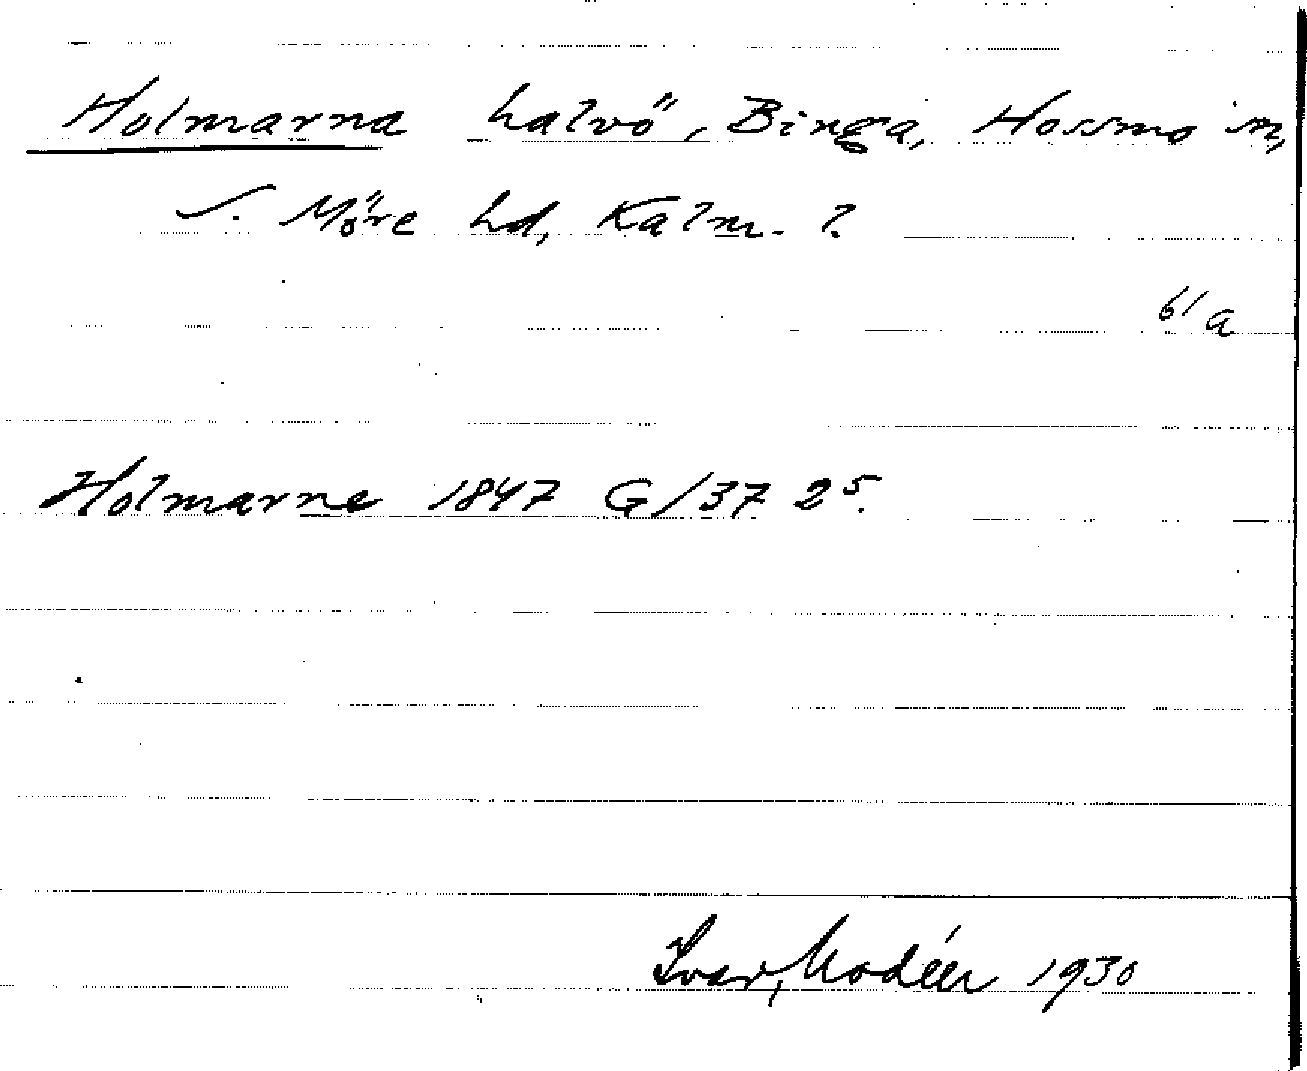 Holmarna halvö, Binga, Hossmo sn,
S. Möre hd, Kalm. l.
61 a
Holmarne 1847 G/37 25.
Ivar Modéer 1930